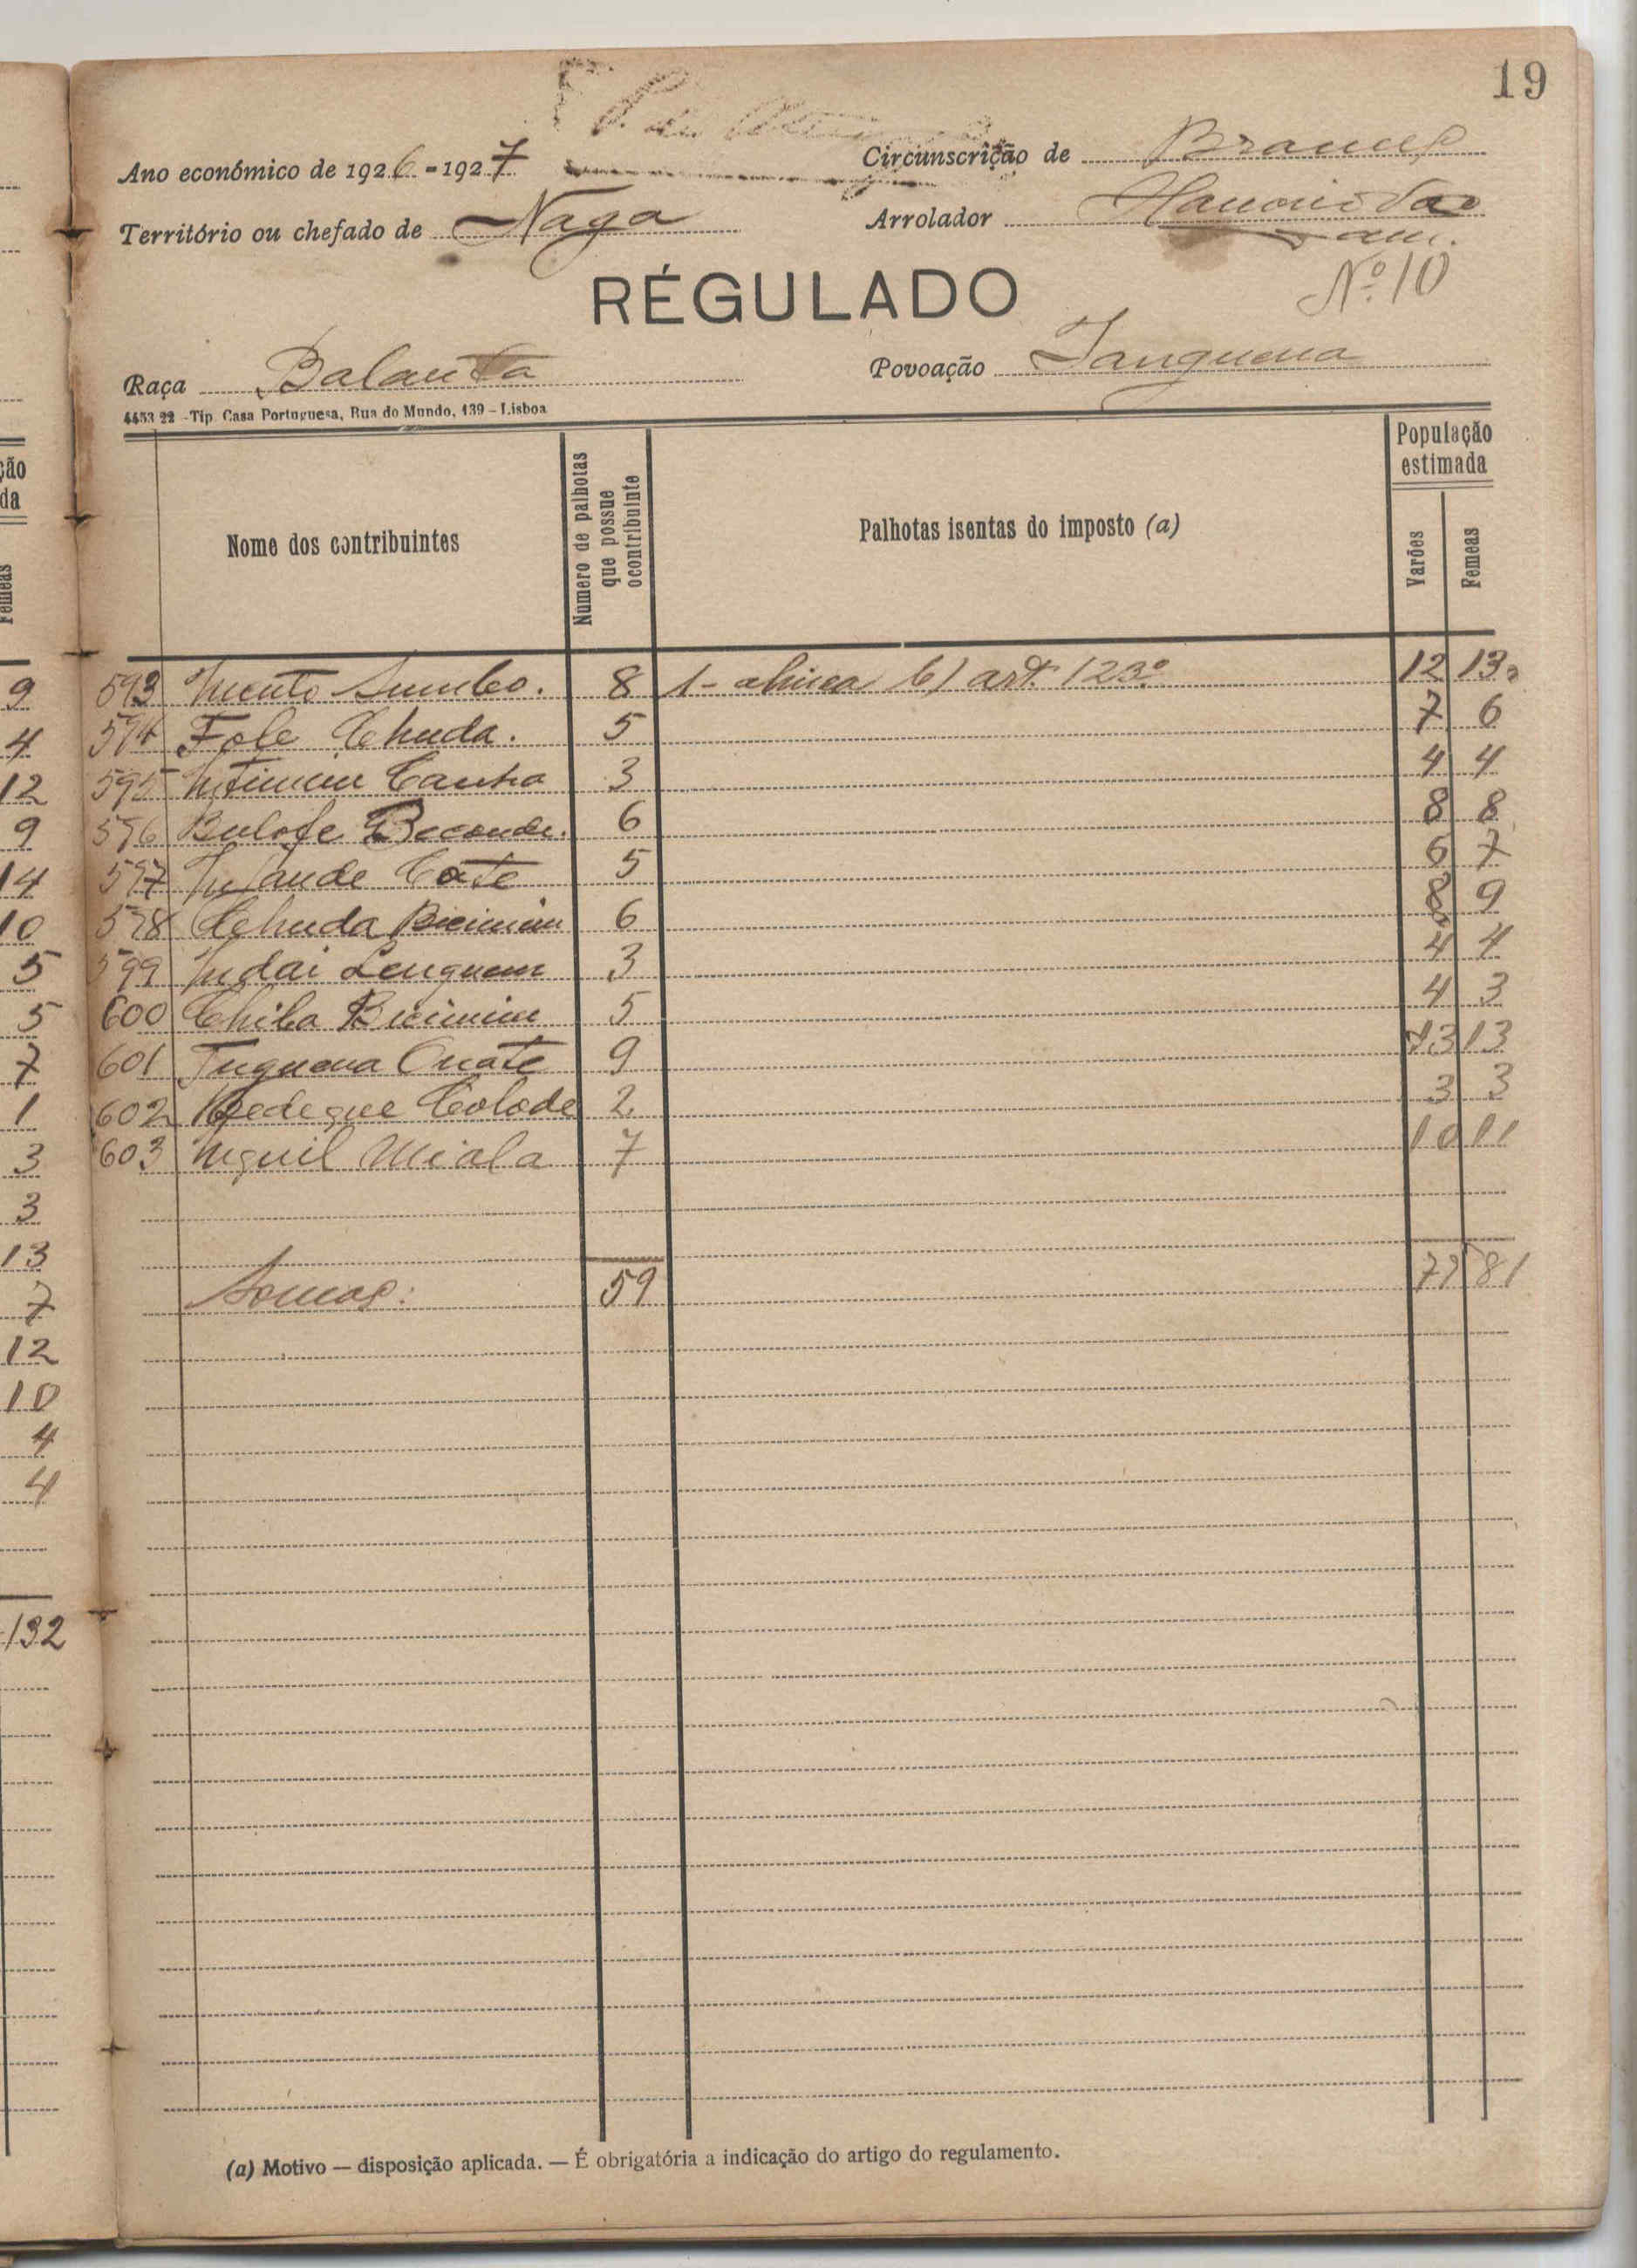 19
Ano económico de 1926-1927
Circunscrição de
Território ou chefado de Naga
Arrolador
RÉGULADO
Nº 10
Raça Balanta
Povoação Tanguena
4453 22 - Tip. Casa Portuguesa, Rua do Mundo, 139 - Lisboa
Nome dos contribuintes
Número de palhotas que possue o contribuinte
Palhotas isentas do imposto (a)
População estimada
Varões
Femeas
593 8 1 - alinea b) artº 123º 12 13
594 Fole Chuda. 5 7 6
595 3 4 4
596 Bulofe 6 8 8
597 5 6 7
598 Chuda Bicimim 6 8 9
599 Indai Lenguem 3 4 4
600 Chiba Bicimim 5 4 3
601 Tuguena 9 13 13
602 Colode 2 3 3
603 Miala 7 10 11
Somas: 59 79 81
(a) Motivo — disposição aplicada. — É obrigatória a indicação do artigo do regulamento.
ção
da
Femeas
9
4
12
9
14
10
5
5
7
1
3
3
13
7
12
10
4
4
132